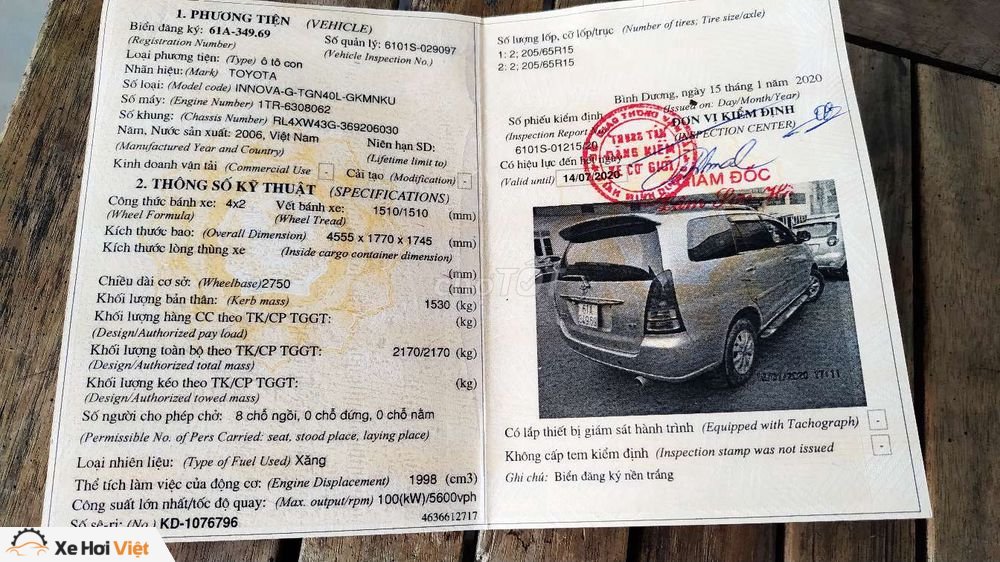 1. PHƯƠNG TIỆN (VEHICLE)
Biển đăng ký: 61A-349.69 Số quản lý: 6101S-029097
(Registration Number) (Vehicle Inspection No.)
Loại phương tiện: (Type) ô tô con
Nhãn hiệu: (Mark) TOYOTA
Số loại: (Model code) INNOVA-G-TGN40L-GKMNKU
Số máy: (Engine Number) 1TR-6308062
Số khung: (Chassis Number) RL4XW43G-369206030
Năm, Nước sản xuất: 2006, Việt Nam Niên hạn SD:
(Manufactured Year and Country) (Lifetime limit to)
Kinh doanh vận tải (Commercial Use) - Cải tạo (Modification) -
2. THÔNG SỐ KỸ THUẬT (SPECIFICATIONS)
Công thức bánh xe: 4x2 Vết bánh xe: 1510/1510 (mm)
(Wheel Formula) (Wheel Tread)
Kích thước bao: (Overall Dimension) 4555 x 1770 x 1745 (mm)
Kích thước lòng thùng xe (Inside cargo container dimension)
(mm)
Chiều dài cơ sở: (Wheelbase) 2750 (mm)
Khối lượng bản thân: (Kerb mass) 1530 (kg)
Khối lượng hàng CC theo TK/CP TGGT: (kg)
(Design/Authorized pay load)
Khối lượng toàn bộ theo TK/CP TGGT: 2170/2170 (kg)
(Design/Authorized total mass)
Khối lượng kéo theo TK/CP TGGT: (kg)
(Design/Authorized towed mass)
Số người cho phép chở: 8 chỗ ngồi, 0 chỗ đứng, 0 chỗ nằm
(Permissible No. of Pers Carried: seat, stood place, laying place)
Loại nhiên liệu: (Type of Fuel Used) Xăng
Thể tích làm việc của động cơ: (Engine Displacement) 1998 (cm3)
Công suất lớn nhất/tốc độ quay: (Max. output/rpm) 100(kW)/5600vph
Số sê-ri: (No.) KD-1076796 4636612717
Số lượng lốp, cỡ lốp/trục (Number of tires; Tire size/axle)
1: 2; 205/65R15
2: 2; 205/65R15
Bình Dương, ngày 15 tháng 1 năm 2020
(Issued on: Day/Month/Year)
Số phiếu kiểm định ĐƠN VỊ KIỂM ĐỊNH
(Inspection Report (INSPECTION CENTER)
6101S-01215/20
Có hiệu lực đến hết ngày
(Valid until) 14/07/2020
TRUNG TÂM
ĐĂNG KIỂM
XE CƠ GIỚI
GIÁM ĐỐC
CHỢ TỐT
61A
Có lắp thiết bị giám sát hành trình (Equipped with Tachograph) -
Không cấp tem kiểm định (Inspection stamp was not issued -
Ghi chú: Biển đăng ký nền trắng
Xe Hơi Việt